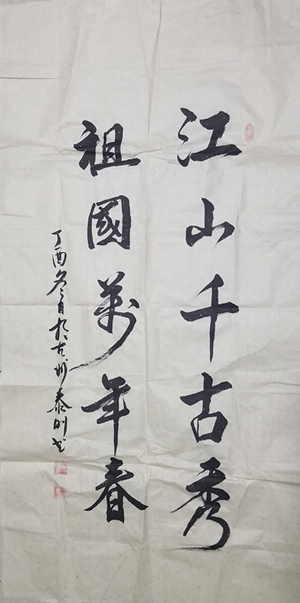 江山千古秀
祖國萬年春
丁酉冬月於古州泰州书